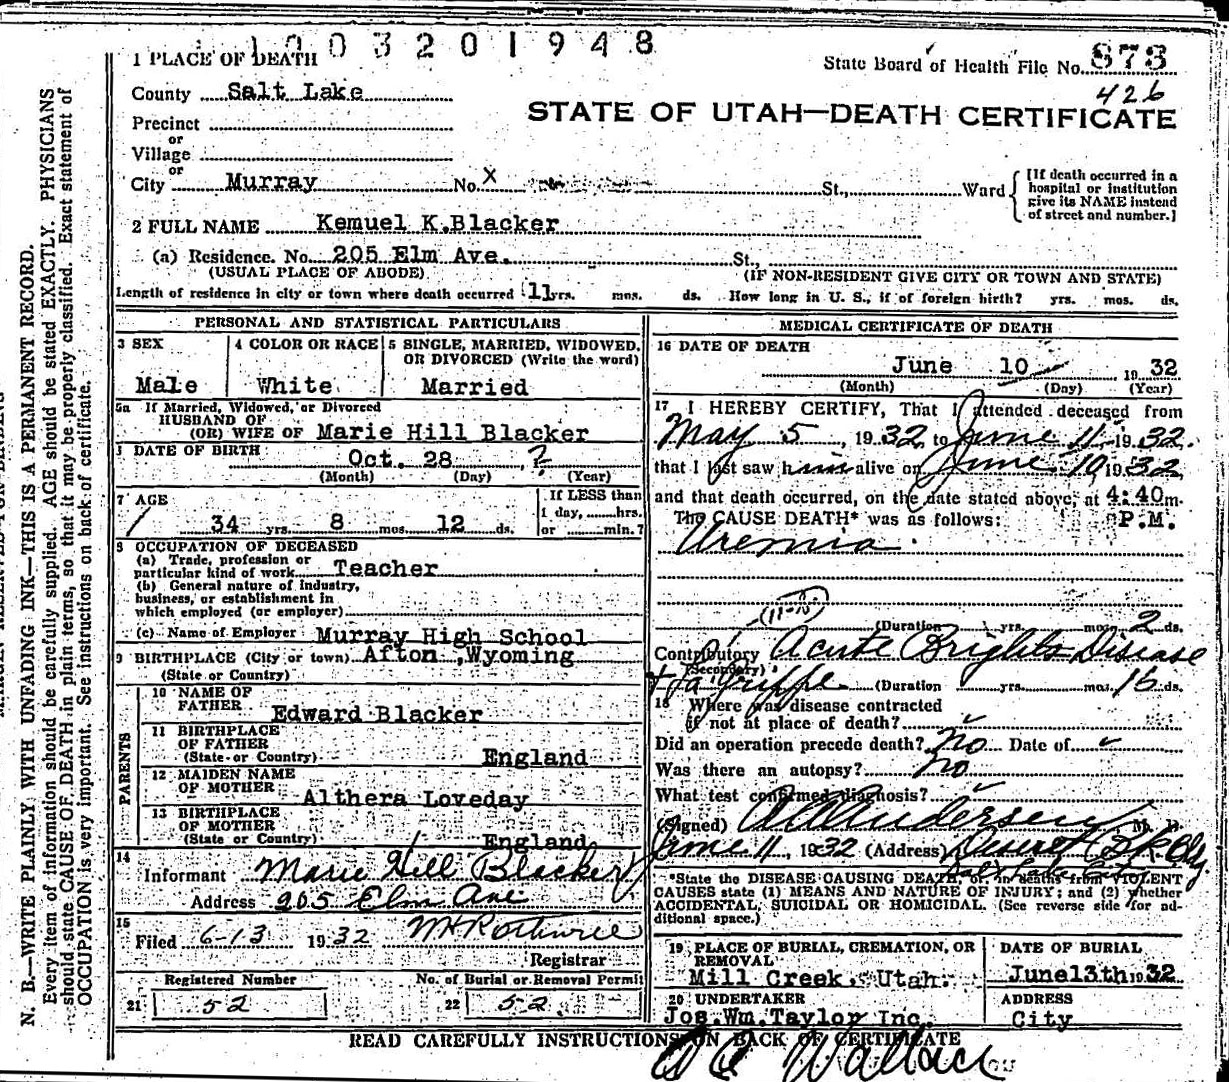 1003201948
1 PLACE OF DEATH
State Board of Health File No. 873
426
County Salt Lake
STATE OF UTAH—DEATH CERTIFICATE
Precinct
or
Village
or
City Murray No. X St., Ward
[If death occurred in a
hospital or institution
give its NAME instead
of street and number.]
2 FULL NAME Kemuel K.Blacker
(a) Residence. No. 205 Elm Ave. St.,
(USUAL PLACE OF ABODE) (IF NON-RESIDENT GIVE CITY OR TOWN AND STATE)
Length of residence in city or town where death occurred 11 yrs. mos. ds. How long in U. S., if of foreign birth? yrs. mos. ds.
PERSONAL AND STATISTICAL PARTICULARS
3 SEX
Male
4 COLOR OR RACE
White
5 SINGLE, MARRIED, WIDOWED,
OR DIVORCED (Write the word)
Married
5a If Married, Widowed, or Divorced
HUSBAND OF
(OR) WIFE OF Marie Hill Blacker
DATE OF BIRTH
Oct. 28 , ?
(Month) (Day) (Year)
7 AGE
34 yrs. 8 mos. 12 ds.
If LESS than
1 day, hrs.
or min.?
8 OCCUPATION OF DECEASED
(a) Trade, profession or
particular kind of work Teacher
(b) General nature of industry,
business, or establishment in
which employed (or employer)
(c) Name of Employer Murray High School
9 BIRTHPLACE (City or town) Afton ,Wyoming
(State or Country)
PARENTS
10 NAME OF
FATHER
Edward Blacker
11 BIRTHPLACE
OF FATHER
(State or Country) England
12 MAIDEN NAME
OF MOTHER
Althera Loveday
13 BIRTHPLACE
OF MOTHER
(State or Country) England
14
Informant Marie Hill Blacker
Address 205 Elm Ave
15
Filed 6-13 1932
Registrar
Registered Number
21 52
No. of Burial or Removal Permit
22 52
MEDICAL CERTIFICATE OF DEATH
16 DATE OF DEATH
June 10 1932
(Month) (Day) (Year)
17 I HEREBY CERTIFY, That I attended deceased from
May 5, 1932 to June 11 1932.
that I last saw him alive on June 10, 1932,
and that death occurred, on the date stated above, at 4:40 m.
The CAUSE DEATH* was as follows: P.M.
Uremia
(Duration yrs. mos. 2 ds.
Contributory Acute Brights Disease
(Secondary)
+ La Grippe (Duration yrs. mos. 16 ds.
18 Where was disease contracted
if not at place of death?
Did an operation precede death? No Date of
Was there an autopsy? No
What test confirmed diagnosis?
(Signed) Andersen M. D.
June 11, 1932 (Address) Deseret Bk Bldg
Salt Lake City
*State the DISEASE CAUSING DEATH, or in deaths from VIOLENT
CAUSES state (1) MEANS AND NATURE OF INJURY; and (2) whether
ACCIDENTAL, SUICIDAL OR HOMICIDAL. (See reverse side for ad-
ditional space.)
19 PLACE OF BURIAL, CREMATION, OR
REMOVAL
Mill Creek, Utah.
DATE OF BURIAL
June13th 1932
20 UNDERTAKER
Jos.Wm.Taylor Inc.
ADDRESS
City
READ CAREFULLY INSTRUCTIONS ON BACK OF CERTIFICATE
Wallace
N. B.—WRITE PLAINLY WITH UNFADING INK—THIS IS A PERMANENT RECORD.
Every item of information should be carefully supplied. AGE should be stated EXACTLY. PHYSICIANS
should state CAUSE OF DEATH in plain terms, so that it may be properly classified. Exact statement of
OCCUPATION is very important. See instructions on back of certificate.